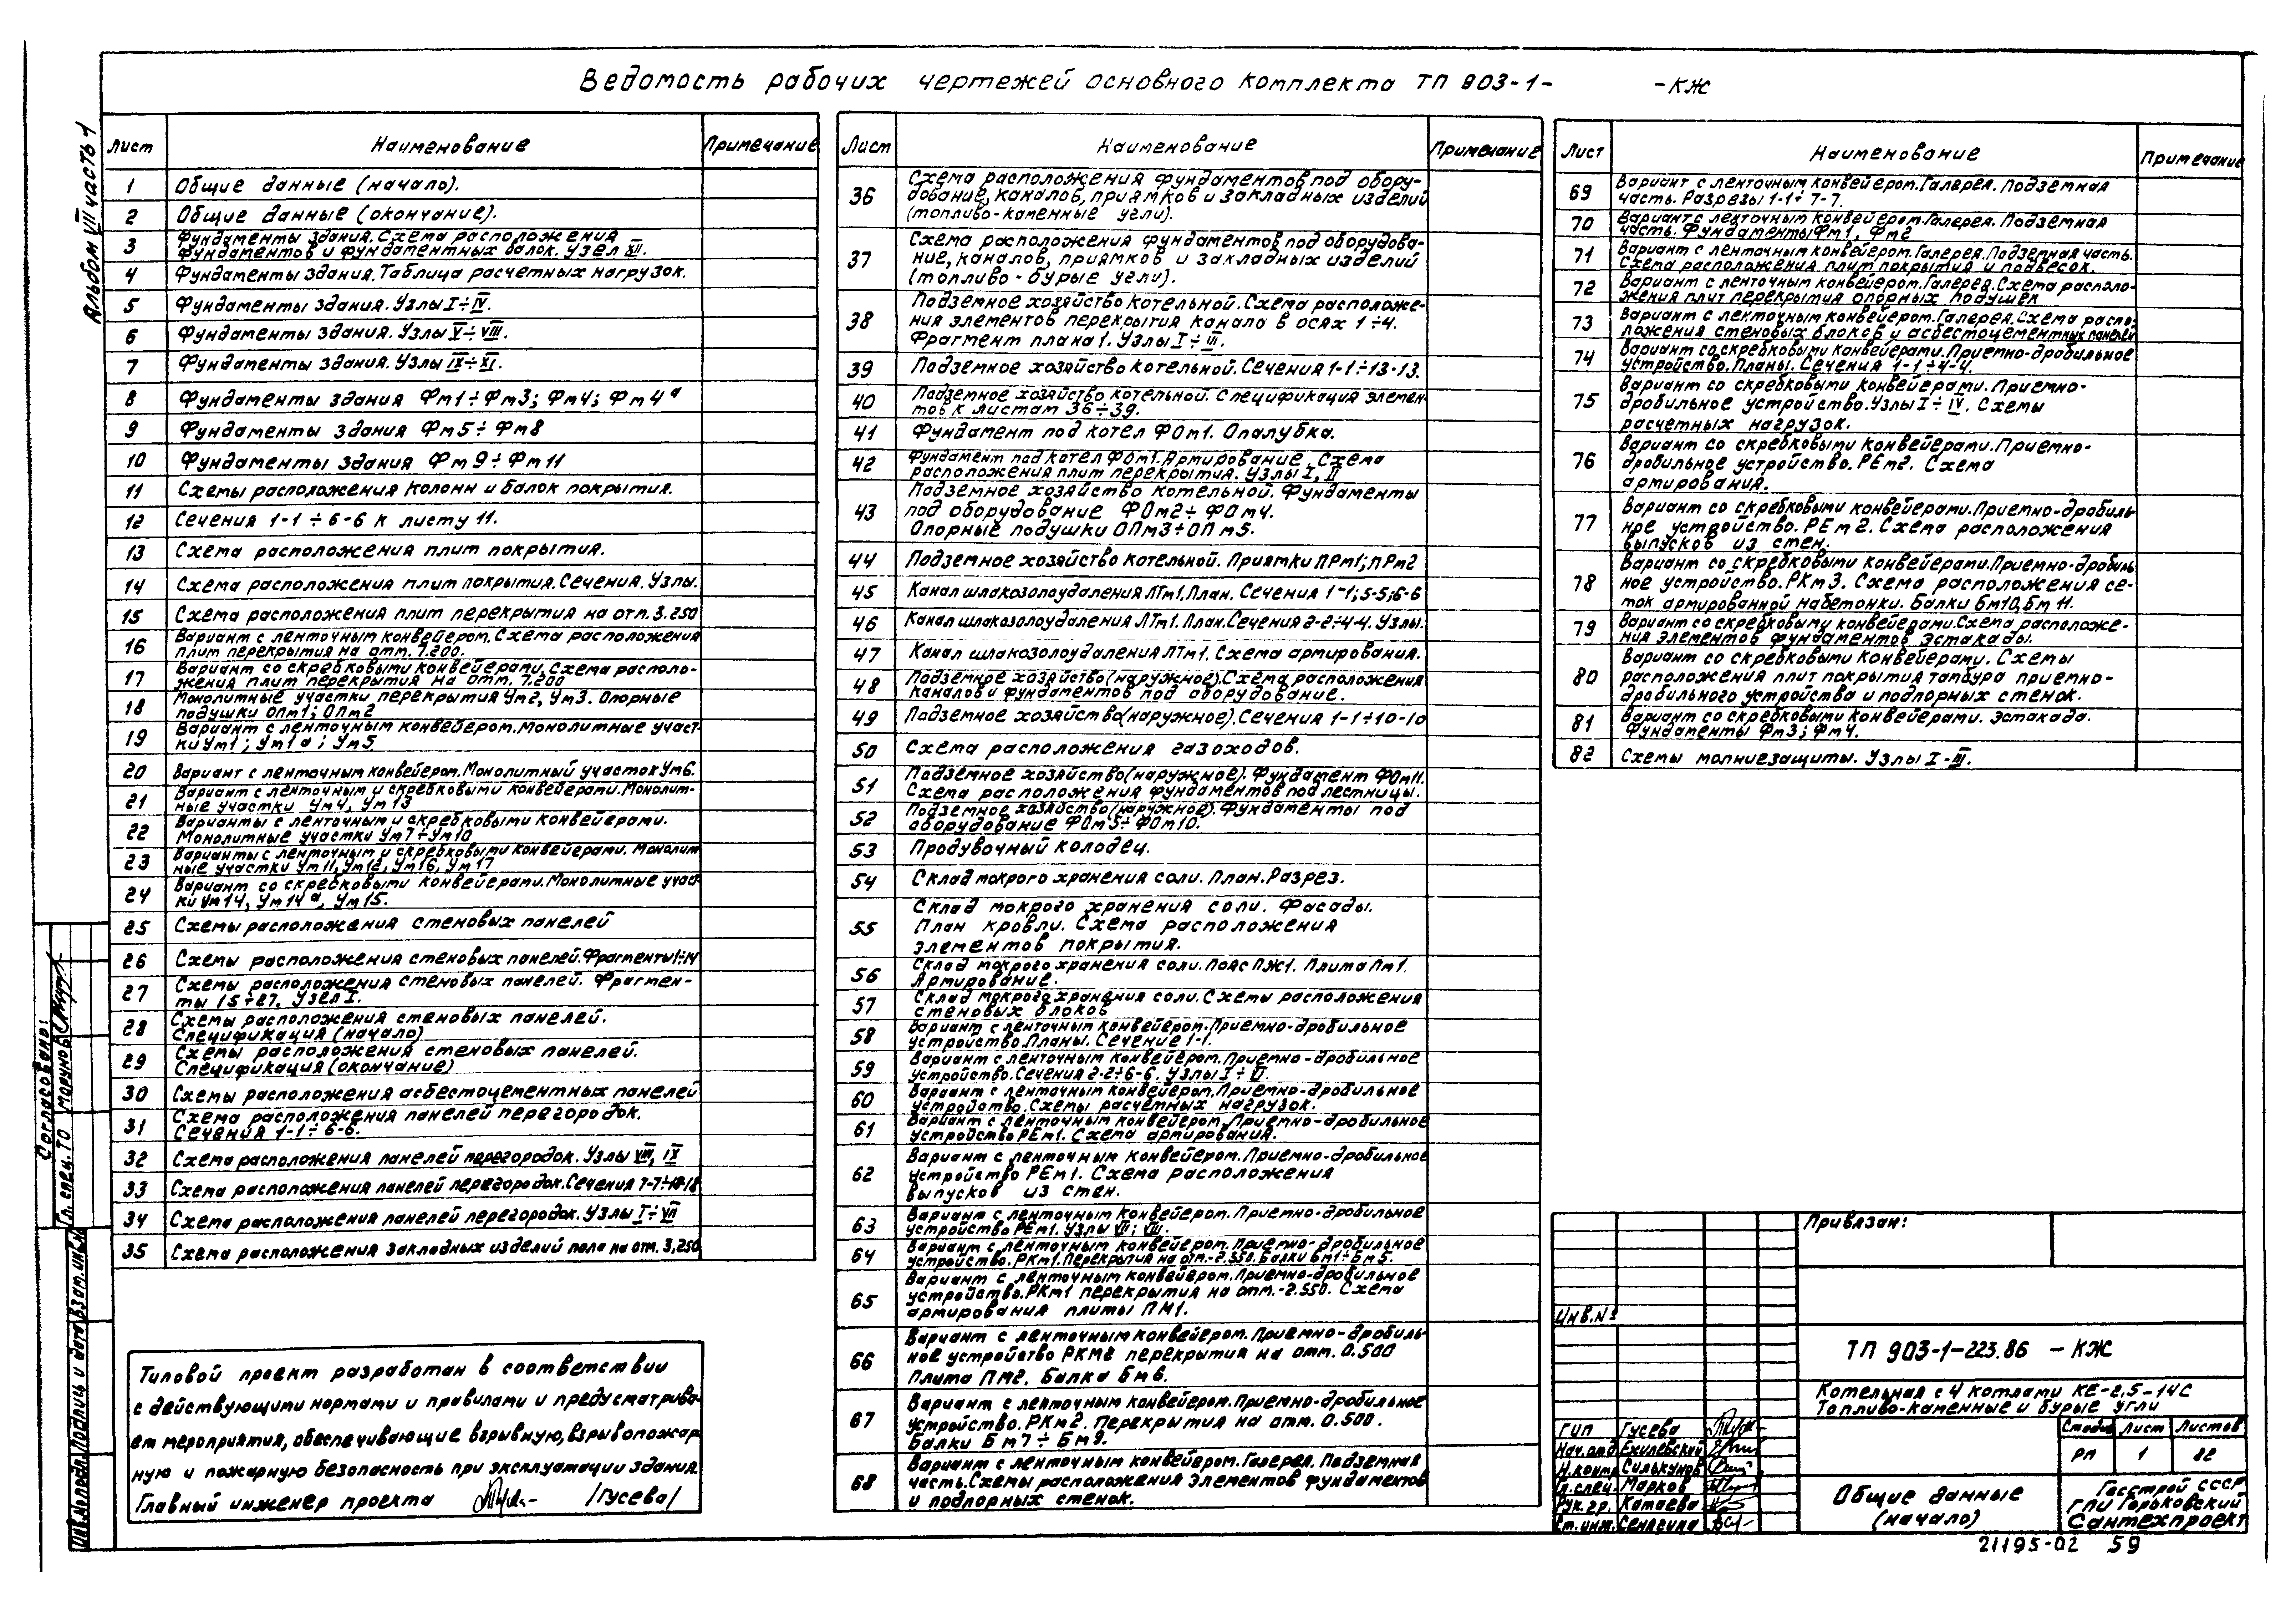 Ведомость рабочих чертежей основного комплекта ТП 903-1- -КЖ
Альбом VII часть 1
Лист Наименование Примечание
1 Общие данные (начало).
2 Общие данные (окончание).
3 Фундаменты здания. Схема расположения
фундаментов и фундаментных балок. Узел XII.
4 Фундаменты здания. Таблица расчетных нагрузок.
5 Фундаменты здания. Узлы I÷IV.
6 Фундаменты здания. Узлы V÷VIII.
7 Фундаменты здания. Узлы IX÷XI.
8 Фундаменты здания Фм1÷Фм3; Фм4; Фм4а
9 Фундаменты здания Фм5÷Фм8
10 Фундаменты здания Фм9÷Фм11
11 Схемы расположения колонн и балок покрытия.
12 Сечения 1-1÷6-6 к листу 11.
13 Схема расположения плит покрытия.
14 Схема расположения плит покрытия. Сечения. Узлы.
15 Схема расположения плит перекрытия на отм. 3.250
16 Вариант с ленточным конвейером. Схема расположения
плит перекрытия на отм. 7.200.
17 Вариант со скребковыми конвейерами. Схема располо-
жения плит перекрытия на отм. 7.200
18 Монолитные участки перекрытия Ум2, Ум3. Опорные
подушки ОПм1; ОПм2
19 Вариант с ленточным конвейером. Монолитные участ-
ки Ум1; Ум1а; Ум5
20 Вариант с ленточным конвейером. Монолитный участок Ум6.
21 Вариант с ленточным и скребковыми конвейерами. Монолит-
ные участки Ум4, Ум13
22 Варианты с ленточным и скребковыми конвейерами.
Монолитные участки Ум7÷Ум10
23 Варианты с ленточным и скребковыми конвейерами. Монолит
ные участки Ум11, Ум12, Ум16, Ум17
24 Вариант со скребковыми конвейерами. Монолитные участ-
ки Ум14, Ум14а, Ум15.
25 Схемы расположения стеновых панелей
26 Схемы расположения стеновых панелей. Фрагменты 1÷14
27 Схемы расположения стеновых панелей. Фрагмен-
ты 15÷27. Узел I.
28 Схемы расположения стеновых панелей.
Спецификация (начало)
29 Схемы расположения стеновых панелей.
Спецификация (окончание)
30 Схемы расположения асбестоцементных панелей
31 Схема расположения панелей перегородок.
Сечения 1-1÷6-6.
32 Схема расположения панелей перегородок. Узлы VIII, IX
33 Схема расположения панелей перегородок. Сечения 7-7÷18-18
34 Схема расположения панелей перегородок. Узлы I÷VII
35 Схема расположения закладных изделий пола на отм. 3,250
Типовой проект разработан в соответствии
с действующими нормами и правилами и предусматрива-
ет мероприятия, обеспечивающие взрывную, взрывопожар
ную и пожарную безопасность при эксплуатации здания.
Главный инженер проекта /Гусева/
Лист Наименование Примечание
36 Схема расположения фундаментов под обору-
дование, каналов, приямков и закладных изделий
(топливо-каменные угли).
37 Схема расположения фундаментов под оборудова-
ние, каналов, приямков и закладных изделий
(топливо-бурые угли).
38 Подземное хозяйство котельной. Схема расположе-
ния элементов перекрытия канала в осях 1÷4.
Фрагмент плана 1. Узлы I÷III.
39 Подземное хозяйство котельной. Сечения 1-1÷13-13.
40 Подземное хозяйство котельной. Спецификация элемен-
тов к листам 36÷39.
41 Фундамент под котел ФОм1. Опалубка.
42 Фундамент под котел ФОм1. Армирование. Схема
расположения плит перекрытия. Узлы I, II
43 Подземное хозяйство котельной. Фундаменты
под оборудование ФОм2÷ФОм4.
Опорные подушки ОПм3÷ОПм5.
44 Подземное хозяйство котельной. Приямки ПРм1; ПРм2
45 Канал шлакозолоудаления ЛТм1. План. Сечения 1-1; 5-5; 6-6
46 Канал шлакозолоудаления ЛТм1. План. Сечения 2-2÷4-4. Узлы.
47 Канал шлакозолоудаления ЛТм1. Схема армирования.
48 Подземное хозяйство (наружное). Схема расположения
каналов и фундаментов под оборудование.
49 Подземное хозяйство (наружное). Сечения 1-1÷10-10
50 Схема расположения газоходов.
51 Подземное хозяйство (наружное). Фундамент ФОм11.
Схема расположения фундаментов под лестницы.
52 Подземное хозяйство (наружное). Фундаменты под
оборудование ФОм5÷ФОм10.
53 Продувочный колодец.
54 Склад мокрого хранения соли. План. Разрез.
55 Склад мокрого хранения соли. Фасады.
План кровли. Схема расположения
элементов покрытия.
56 Склад мокрого хранения соли. Пояс ПЖ1. Плита Пм1.
Армирование.
57 Склад мокрого хранения соли. Схемы расположения
стеновых блоков
58 Вариант с ленточным конвейером. Приемно-дробильное
устройство. Планы. Сечение 1-1.
59 Вариант с ленточным конвейером. Приемно-дробильное
устройство. Сечения 2-2÷6-6. Узлы I÷VI.
60 Вариант с ленточным конвейером. Приемно-дробильное
устройство. Схемы расчетных нагрузок.
61 Вариант с ленточным конвейером. Приемно-дробильное
устройство РЕм1. Схема армирования.
62 Вариант с ленточным конвейером. Приемно-дробильное
устройство РЕм1. Схема расположения
выпусков из стен.
63 Вариант с ленточным конвейером. Приемно-дробильное
устройство РЕм1. Узлы VII; VIII.
64 Вариант с ленточным конвейером. Приемно-дробильное
устройство. РКм1. Перекрытия на отм.-2.550. Балки Бм1÷Бм5.
65 Вариант с ленточным конвейером. Приемно-дробильное
устройство. РКм1 перекрытия на отм.-2.550. Схема
армирования плиты ПМ1.
66 Вариант с ленточным конвейером. Приемно-дробиль-
ное устройство РКМ2 перекрытия на отм. 0.500
плита ПМ2. Балка Бм6.
67 Вариант с ленточным конвейером. Приемно-дробильное
устройство. РКм2. Перекрытия на отм. 0.500.
Балки Бм7÷Бм9.
68 Вариант с ленточным конвейером. Галерея. Подземная
часть. Схемы расположения элементов фундаментов
и подпорных стенок.
Лист Наименование Примечание
69 Вариант с ленточным конвейером. Галерея. Подземная
часть. Разрезы 1-1÷7-7.
70 Вариант с ленточным конвейером. Галерея. Подземная
часть. Фундаменты Фм1, Фм2
71 Вариант с ленточным конвейером. Галерея. Подземная часть.
Схема расположения плит покрытия и подвесок.
72 Вариант с ленточным конвейером. Галерея. Схема располо-
жения плит перекрытия опорных подушек
73 Вариант с ленточным конвейером. Галерея. Схема распо-
ложения стеновых блоков и асбестоцементных панелей
74 Вариант со скребковыми конвейерами. Приемно-дробильное
устройство. Планы. Сечения 1-1÷4-4.
75 Вариант со скребковыми конвейерами. Приемно-
дробильное устройство. Узлы I÷IV. Схемы
расчетных нагрузок.
76 Вариант со скребковыми конвейерами. Приемно-
дробильное устройство. РЕм2. Схема
армирования.
77 Вариант со скребковыми конвейерами. Приемно-дробиль-
ное устройство. РЕм2. Схема расположения
выпусков из стен.
78 Вариант со скребковыми конвейерами. Приемно-дробиль
ное устройство. РКм3. Схема расположения се-
ток армированной набетонки. Балки Бм10, Бм11.
79 Вариант со скребковыми конвейерами. Схема расположе-
ния элементов фундаментов эстакады.
80 Вариант со скребковыми конвейерами. Схемы
расположения плит покрытия тамбура приемно-
дробильного устройства и подпорных стенок.
81 Вариант со скребковыми конвейерами. Эстакада.
Фундаменты Фм3; Фм4.
82 Схемы молниезащиты. Узлы I-III.
Привязан:
Инв.№
ТП 903-1-223.86 -КЖ
Котельная с 4 котлами КЕ-2,5-14С
Топливо-каменные и бурые угли
ГИП Гусева
Нач. отд. Ехилевский
Н. контр. Силькунов
Гл. спец. Марков
Рук. гр. Катаева
Ст. инж. Сенягина
Стадия Лист Листов
РП 1 82
Общие данные
(начало)
Госстрой СССР
ГПИ Горьковский
Сантехпроект
21195-02 59
Согласовано:
Гл. спец. ТО Марунов
Взам. инв.№
Подпись и дата
Инв.№ подл.